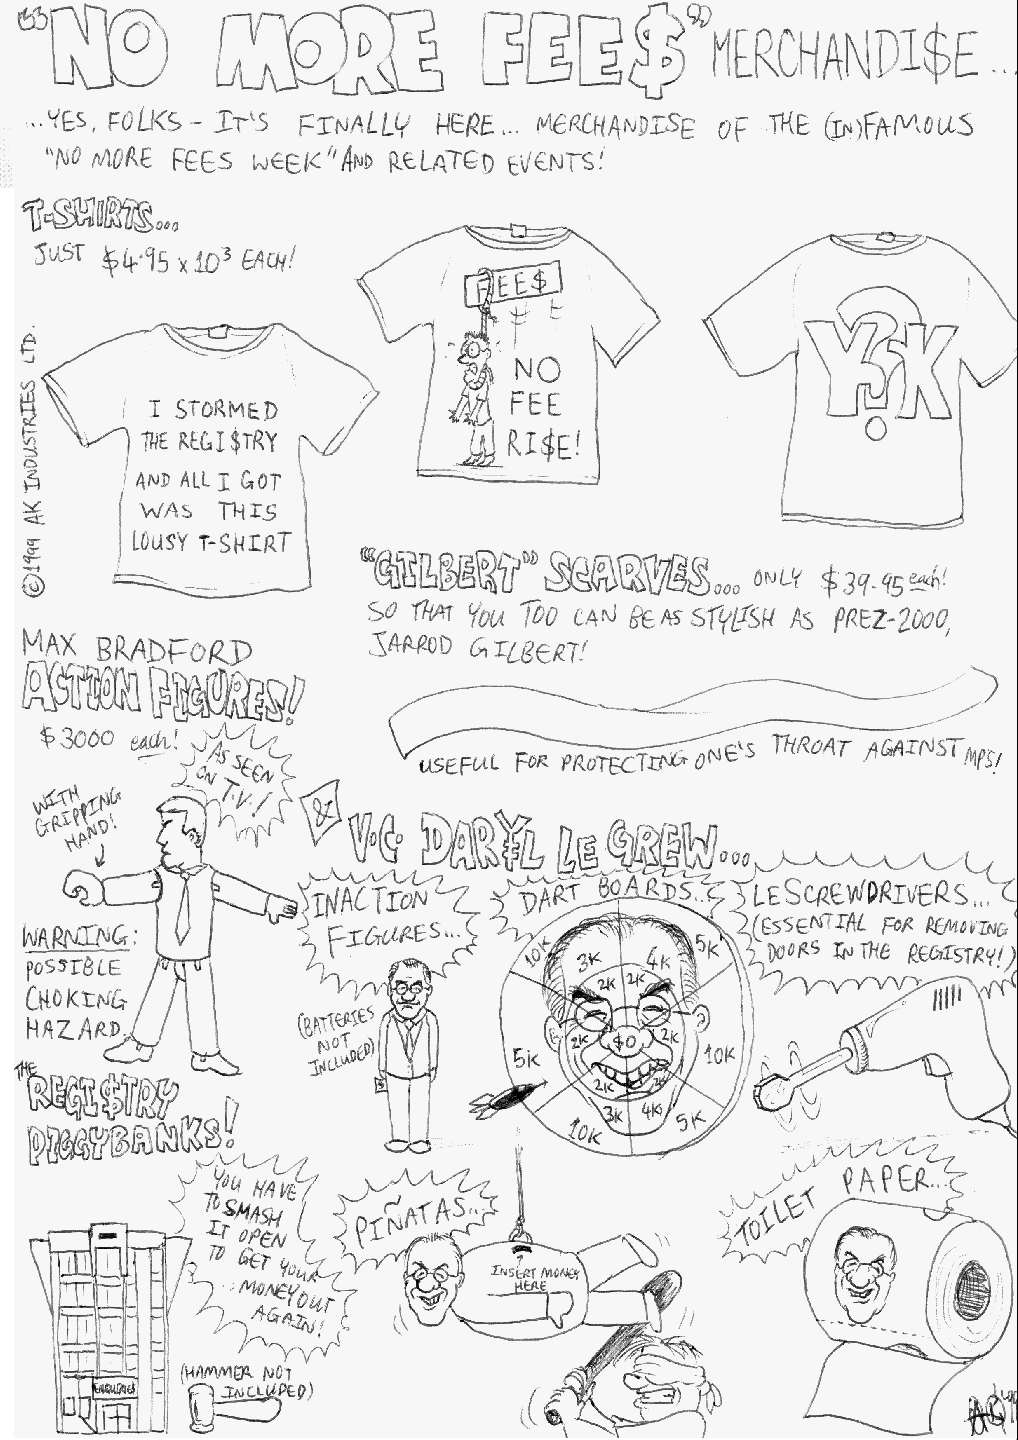 "NO MORE FEE$" MERCHANDI$E...
...YES, FOLKS - IT'S FINALLY HERE... MERCHANDISE OF THE (IN)FAMOUS
"NO MORE FEES WEEK" AND RELATED EVENTS!
T-SHIRTS...
JUST $4.95 x 10³ EACH!
I STORMED
THE REGI$TRY
AND ALL I GOT
WAS THIS
LOUSY T-SHIRT
FEE$
NO
FEE
RI$E!
Y3K
?
©1999 AK INDUSTRIES LTD.
"GILBERT" SCARVES... ONLY $39.95 each!
SO THAT YOU TOO CAN BE AS STYLISH AS PREZ-2000,
JARROD GILBERT!
USEFUL FOR PROTECTING ONE'S THROAT AGAINST MPS!
MAX BRADFORD
ACTION FIGURES!
$3000 each!
AS SEEN
ON T.V.!
WITH
GRIPPING
HAND!
WARNING:
POSSIBLE
CHOKING
HAZARD.
& V.C. DARYL LE GREW...
INACTION
FIGURES...
(BATTERIES
NOT
INCLUDED)
DART BOARDS...
10K
3K
4K
5K
2K
2K
2K
$0
2K
5K
10K
2K
2K
10K
3K
4K
5K
LESCREWDRIVERS...
(ESSENTIAL FOR REMOVING
DOORS IN THE REGISTRY!)
THE
REGI$TRY
PIGGYBANKS!
YOU HAVE
TO SMASH
IT OPEN
TO GET YOUR
MONEY OUT
AGAIN!
ENQUIRIES
(HAMMER NOT
INCLUDED)
PIÑATAS...
INSERT MONEY
HERE
TOILET PAPER...